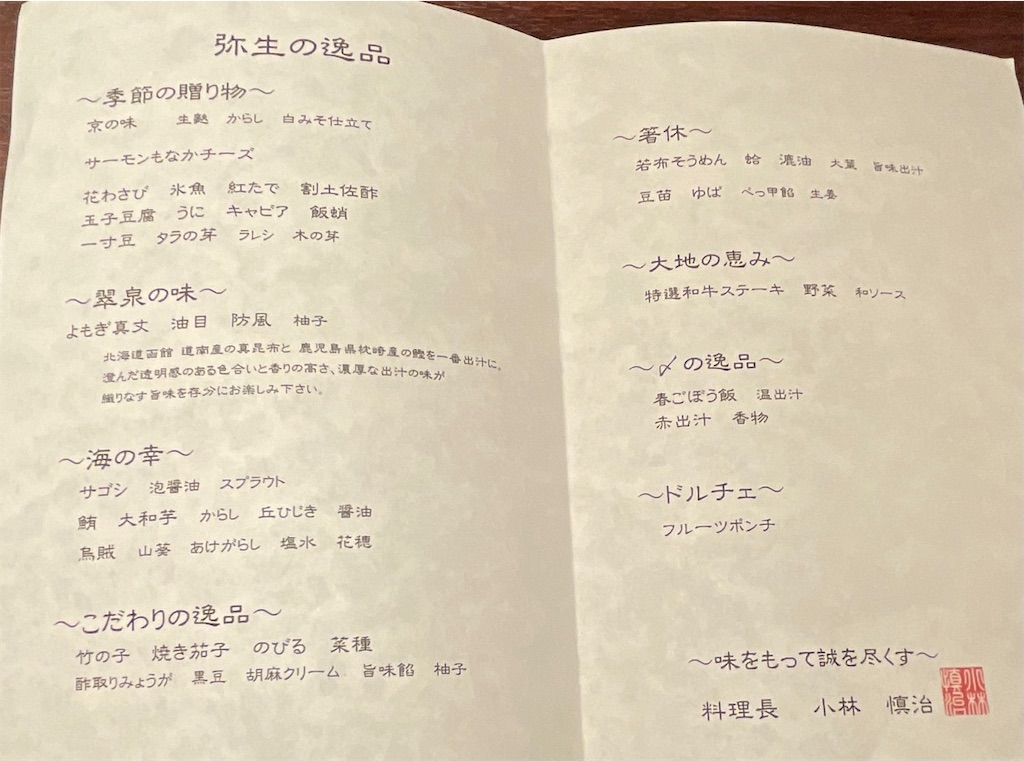 弥生の逸品
～季節の贈り物～
京の味　生麩　からし　白みそ仕立て
サーモンもなかチーズ
花わさび　氷魚　紅たで　割土佐酢
玉子豆腐　うに　キャビア　飯蛸
一寸豆　タラの芽　ラレシ　木の芽
～翠泉の味～
よもぎ真丈　油目　防風　柚子
北海道函館 道南産の真昆布と 鹿児島県枕崎産の鰹を一番出汁に。
澄んだ透明感のある色合いと香りの高さ、濃厚な出汁の味が
織りなす旨味を存分にお楽しみ下さい。
～海の幸～
サゴシ　泡醤油　スプラウト
鮪　大和芋　からし　丘ひじき　醤油
烏賊　山葵　あけがらし　塩水　花穂
～こだわりの逸品～
竹の子　焼き茄子　のびる　菜種
酢取りみょうが　黒豆　胡麻クリーム　旨味餡　柚子
～箸休～
若布そうめん　蛤　漉油　大葉　旨味出汁
豆苗　ゆば　べっ甲餡　生姜
～大地の恵み～
特選和牛ステーキ　野菜　和ソース
～〆の逸品～
春ごぼう飯　温出汁
赤出汁　香物
～ドルチェ～
フルーツポンチ
～味をもって誠を尽くす～
料理長　小林　慎治
小林
慎治